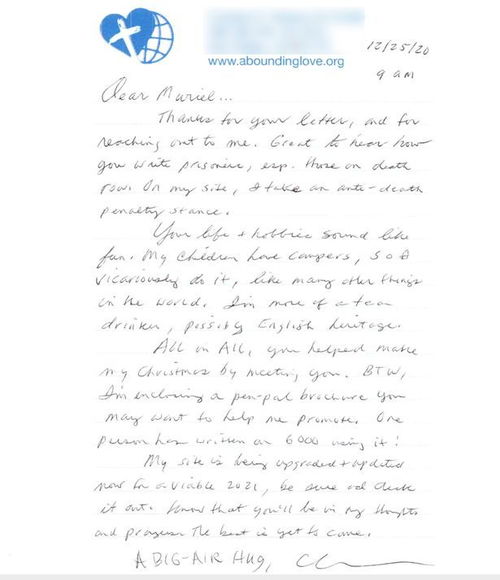 www.aboundinglove.org
12/25/20
9 am
Dear Muriel...
Thanks for your letter, and for
reaching out to me. Great to hear how
you write prisoners, esp. those on death
row. On my site, I take an anti-death
penalty stance.
Your life + hobbies sound like
fun. My children have campers, so I
vicariously do it, like many other things
in the world. I'm more of a tea
drinker, possibly English heritage.
All in All, you helped make
my Christmas by meeting you. BTW,
I'm enclosing a pen-pal brochure you
may want to help me promote. One
person has written on 6000 using it!
My site is being upgraded + updated
now for a viable 2021, be sure and check
it out. Know that you'll be in my thoughts
and prayers. The best is yet to come.
A BIG-AIR Hug,